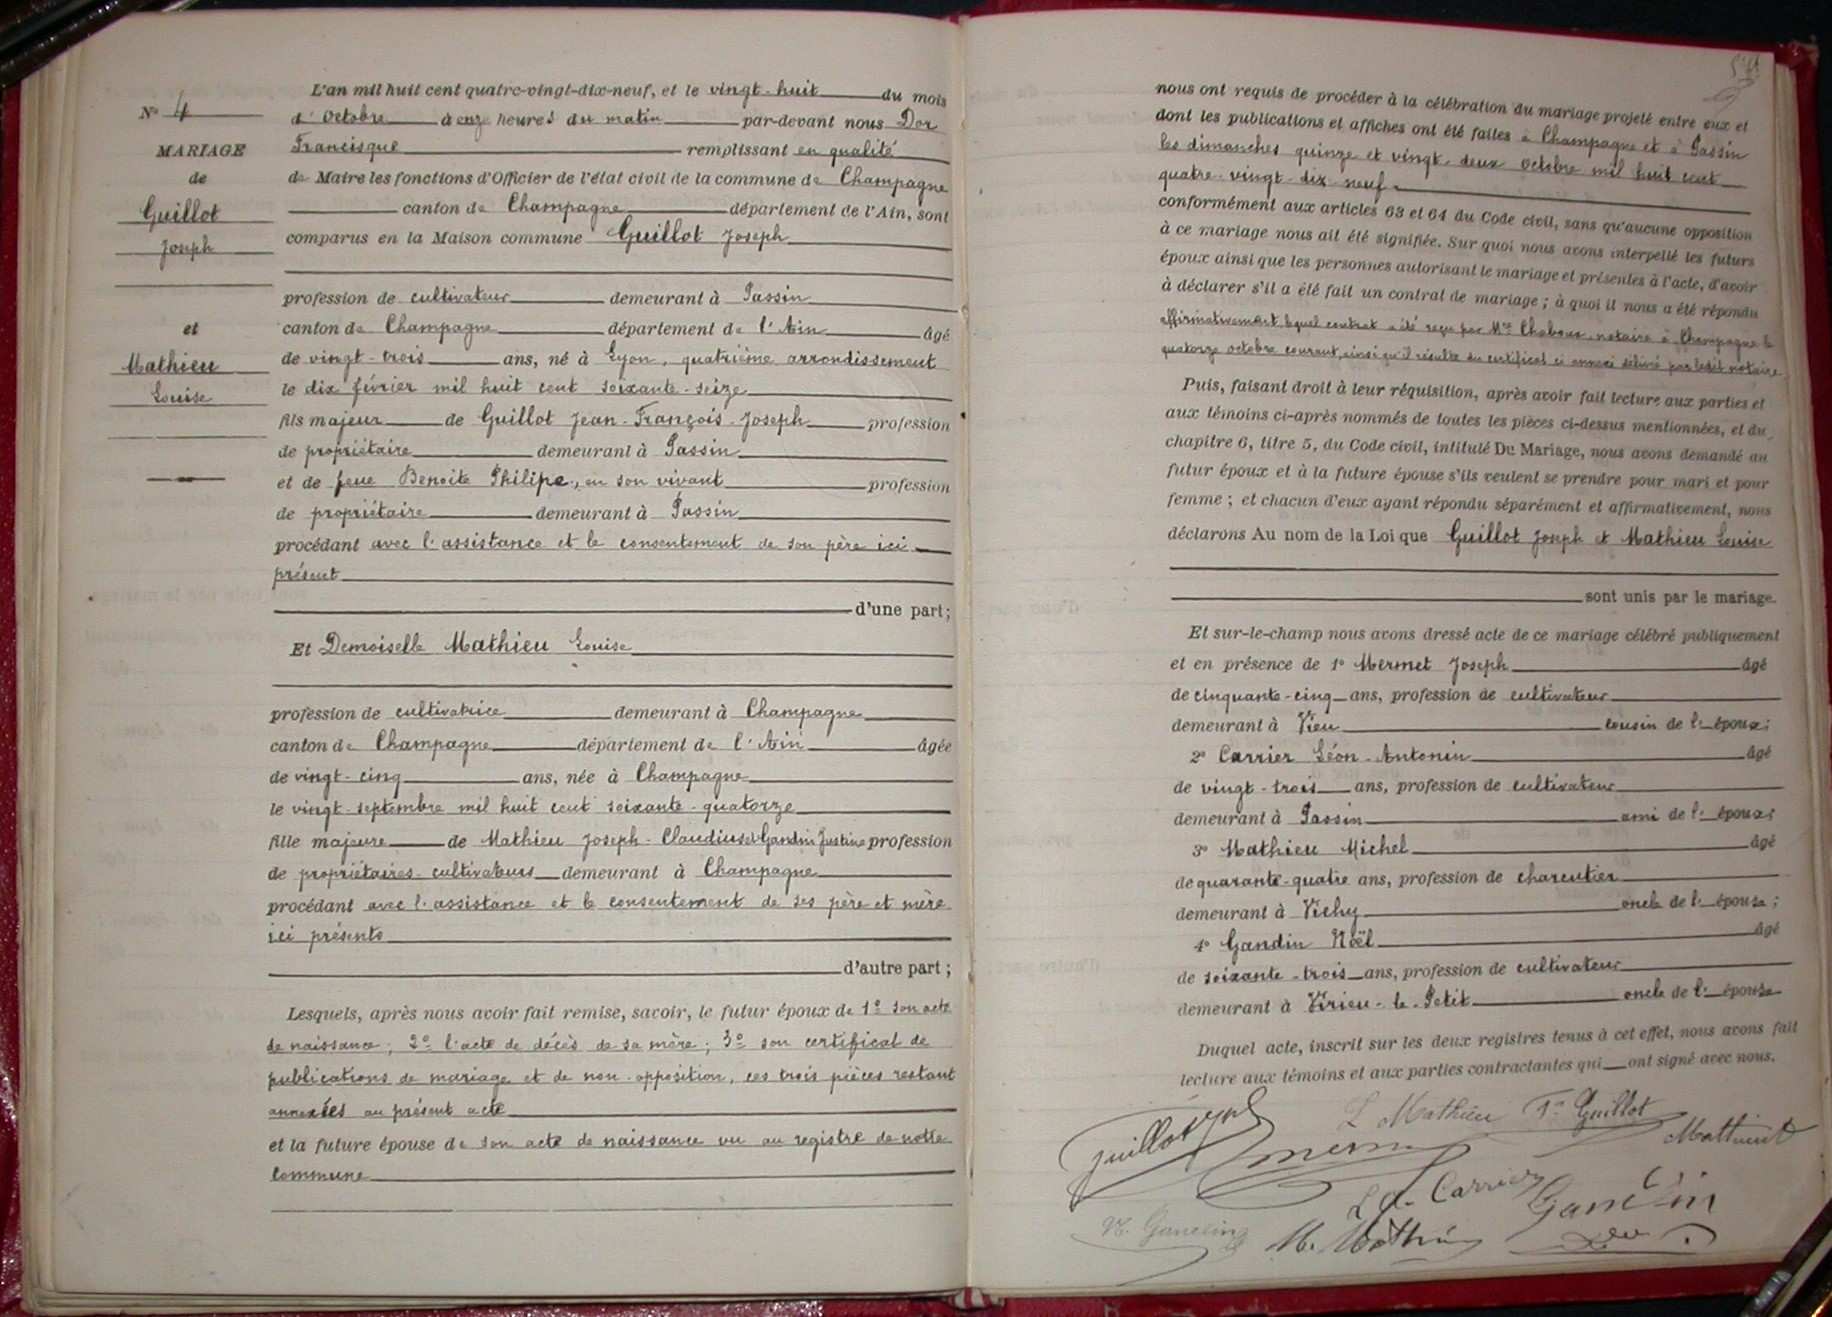 N° 4
MARIAGE
de
Guillot
Joseph
et
Mathieu
Louise
L'an mil huit cent quatre-vingt-dix-neuf, et le vingt-huit du mois
d'Octobre à onz heures du matin par-devant nous Dor
Francisque remplissant en qualité
de Maire les fonctions d'Officier de l'état civil de la commune de Champagne
canton de Champagne département de l'Ain, sont
comparus en la Maison commune Guillot Joseph
profession de cultivateur demeurant à Passin
canton de Champagne département de l'Ain âgé
de vingt-trois ans, né à Lyon, quatrième arrondissement
le dix février mil huit cent soixante-seize
fils majeur de Guillot Jean-François-Joseph profession
de propriétaire demeurant à Passin
et de feue Benoite Philipe, en son vivant profession
de propriétaire demeurant à Passin
procédant avec l'assistance et le consentement de son père ici
présent
d'une part;
Et Demoiselle Mathieu Louise
profession de cultivatrice demeurant à Champagne
canton de Champagne département de l'Ain âgée
de vingt-cinq ans, née à Champagne
le vingt-septembre mil huit cent soixante-quatorze
fille majeure de Mathieu Joseph-Claudius et Gandin Justine profession
de propriétaires-cultivateurs demeurant à Champagne
procédant avec l'assistance et le consentement de ses père et mère
ici présents
d'autre part;
Lesquels, après nous avoir fait remise, savoir, le futur époux de 1° son acte
de naissance; 2° l'acte de décès de sa mère; 3° son certificat de
publications de mariage et de non-opposition, ces trois pièces restant
annexées au présent acte
et la future épouse de son acte de naissance vu au registre de notre
commune
nous ont requis de procéder à la célébration du mariage projeté entre eux et
dont les publications et affiches ont été faites à Champagne et à Passin
les dimanches quinze et vingt-deux octobre mil huit cent
quatre-vingt-dix-neuf
conformément aux articles 63 et 64 du Code civil, sans qu'aucune opposition
à ce mariage nous ait été signifiée. Sur quoi nous avons interpellé les futurs
époux ainsi que les personnes autorisant le mariage et présentes à l'acte, d'avoir
à déclarer s'il a été fait un contrat de mariage; à quoi il nous a été répondu
affirmativement lequel contrat a été reçu par Me Chaboux, notaire à Champagne le
quatorze octobre courant, ainsi qu'il résulte du certificat ci annexé délivré par ledit notaire.
Puis, faisant droit à leur réquisition, après avoir fait lecture aux parties et
aux témoins ci-après nommés de toutes les pièces ci-dessus mentionnées, et du
chapitre 6, titre 5, du Code civil, intitulé Du Mariage, nous avons demandé au
futur époux et à la future épouse s'ils veulent se prendre pour mari et pour
femme; et chacun d'eux ayant répondu séparément et affirmativement, nous
déclarons Au nom de la Loi que Guillot Joseph et Mathieu Louise
sont unis par le mariage.
Et sur-le-champ nous avons dressé acte de ce mariage célébré publiquement
et en présence de 1° Mermet Joseph âgé
de cinquante-cinq ans, profession de cultivateur
demeurant à Vieu cousin de l'époux;
2° Carrier Léon-Antonin âgé
de vingt-trois ans, profession de cultivateur
demeurant à Passin ami de l'époux;
3° Mathieu Michel âgé
de quarante-quatre ans, profession de charcutier
demeurant à Vichy oncle de l'épouse;
4° Gandin Noël âgé
de soixante-trois ans, profession de cultivateur
demeurant à Virieu-le-Petit oncle de l'épouse
Duquel acte, inscrit sur les deux registres tenus à cet effet, nous avons fait
lecture aux témoins et aux parties contractantes qui ont signé avec nous.
L Mathieu
Guillot
Guillot
L A. Carrier
Gandin
N. Gandin
M. Mathieu